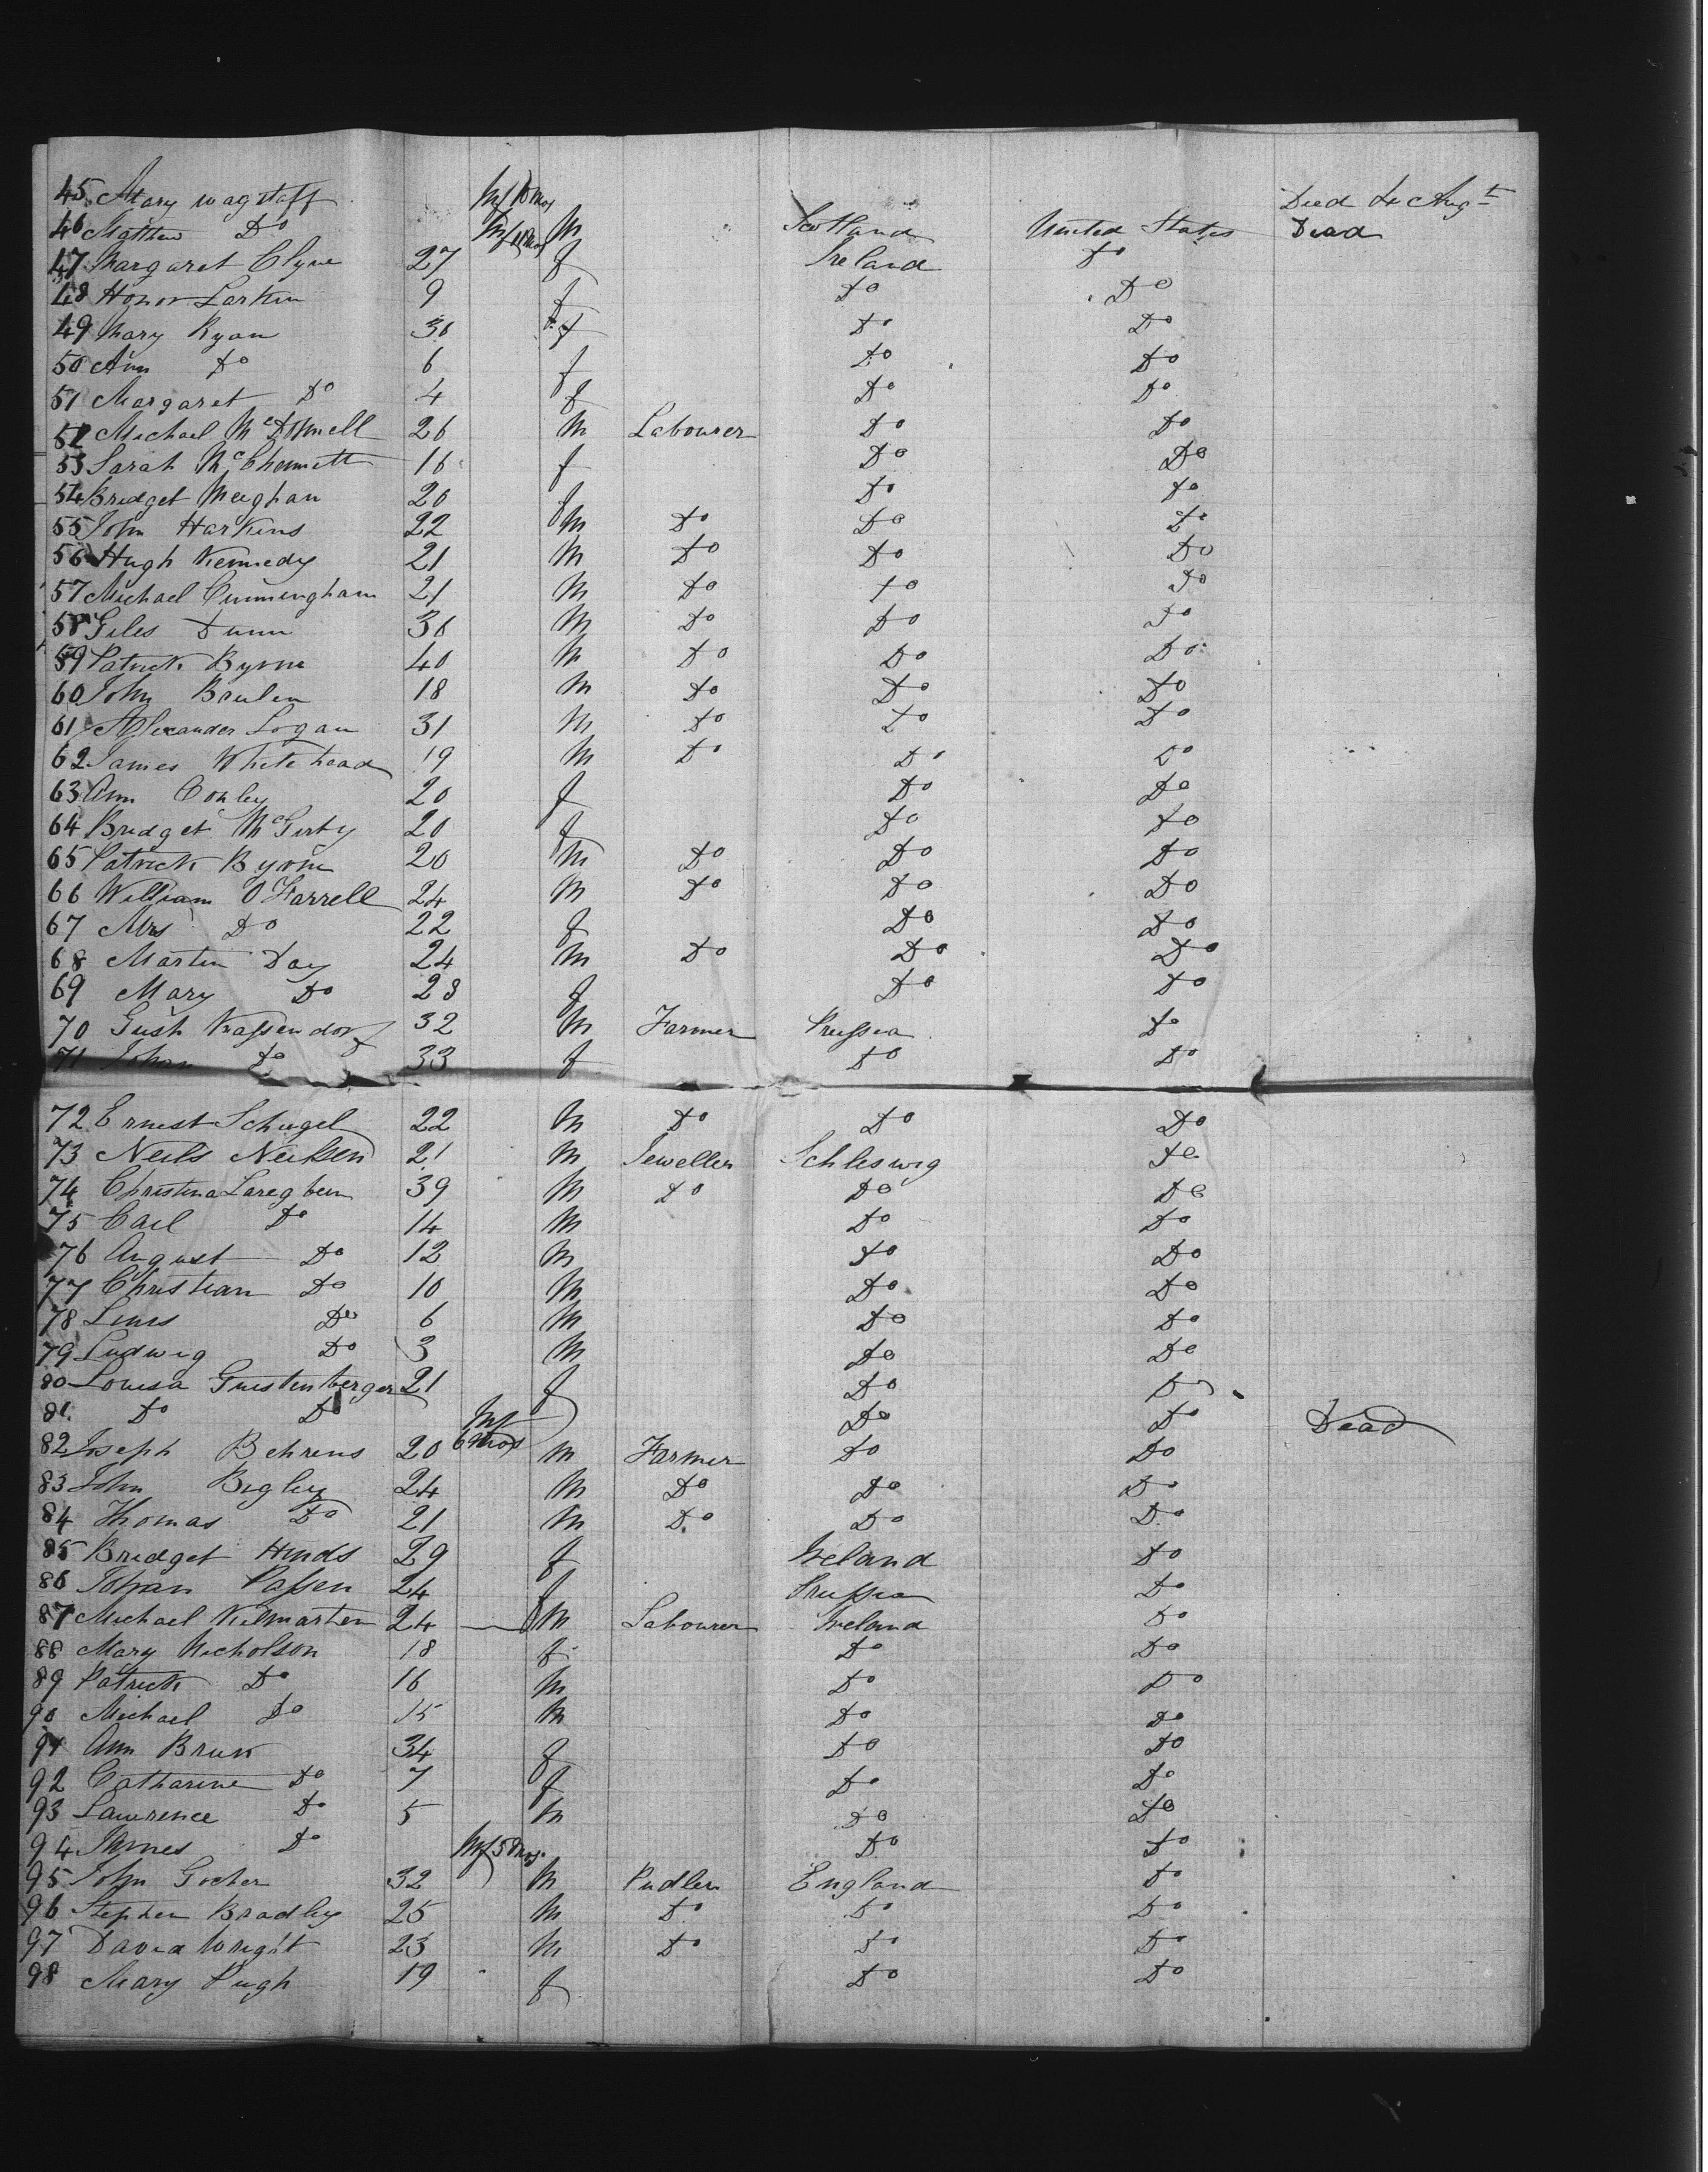 45 Mary wagstaff Inf 10 Mos Died 4 Augt
46 Matthew Do Inf M Scotland United States Dead
47 Margaret Clyne 27 f Ireland Do
48 Honor Larkin 9 f Do Do
49 Mary Ryan 30 f Do Do
50 Ann Do 6 f Do Do
51 Margaret Do 4 f Do Do
52 Michael McDonnell 26 M Labourer Do Do
53 Sarah 16 f Do Do
54 Bridget Meeghan 20 f Do Do
55 John Harkins 22 M Do Do Do
56 Hugh Kennedy 21 M Do Do Do
57 Michael Cunningham 21 M Do Do Do
58 Giles Dunn 30 M Do Do Do
59 Patrick Byrne 40 M Do Do Do
60 John 18 M Do Do Do
61 Alexander Logan 31 M Do Do Do
62 James Whitehead 19 M Do Do Do
63 Ann Conley 20 f Do Do
64 Bridget McGirty 20 f Do Do
65 Patrick Byrne 20 M Do Do Do
66 William O'Farrell 24 M Do Do Do
67 Mrs Do 22 f Do Do
68 Martin Day 24 M Do Do Do
69 Mary Do 23 f Do Do
70 Gust Kassendorf 32 M Farmer Prussia Do
71 Johan Do 33 f Do Do
72 Ernest Schugel 22 M Do Do Do
73 Neils Neilsen 21 M Jeweller Schleswig Do
74 Christina 39 M Do Do Do
75 Carl Do 14 M Do Do
76 August Do 12 M Do Do
77 Christian Do 10 M Do Do
78 Do 6 M Do Do
79 Ludwig Do 3 M Do Do
80 Louisa Gustenberger 21 f Do Do
81 Do Do Inf 6 Mos Do Do Dead
82 Joseph Behrens 20 M Farmer Do Do
83 John Bigley 24 M Do Do Do
84 Thomas Do 21 M Do Do Do
85 Bridget Hinds 29 f Ireland Do
86 Johan Passen 24 f Prussia Do
87 Michael Kilmarten 24 M Labourer Ireland Do
88 Mary Nicholson 18 f Do Do
89 Patrick Do 16 M Do Do
90 Michael Do 15 M Do Do
91 Ann 34 f Do Do
92 Catharine Do 7 f Do Do
93 Lawrence Do 5 M Do Do
94 James Do Inf 5 Mos Do Do
95 John Gocher 32 M Pudler England Do
96 Stephen Bradley 25 M Do Do Do
97 David Wright 23 M Do Do Do
98 Mary Pugh 19 f Do Do